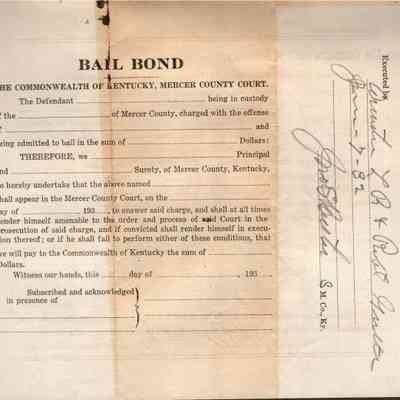 BAIL BOND
THE COMMONWEALTH OF KENTUCKY, MERCER COUNTY COURT.
The Defendant being in custody
of the of Mercer County, charged with the offense
of and
being admitted to bail in the sum of Dollars:
THEREFORE, we Principal
and Surety, of Mercer County, Kentucky,
do hereby undertake that the above named
shall appear in the Mercer County Court, on the
day of 193 to answer said charge, and shall at all times
render himself amenable to the order and process of said Court in the
prosecution of said charge, and if convicted shall render himself in execu-
tion thereof; or if he shall fail to perform either of these conditions, that
we will pay to the Commonwealth of Kentucky the sum of
Dollars.
Witness our hands, this day of , 193
Subscribed and acknowledged
in presence of
Executed by
S M. Co., Ky.